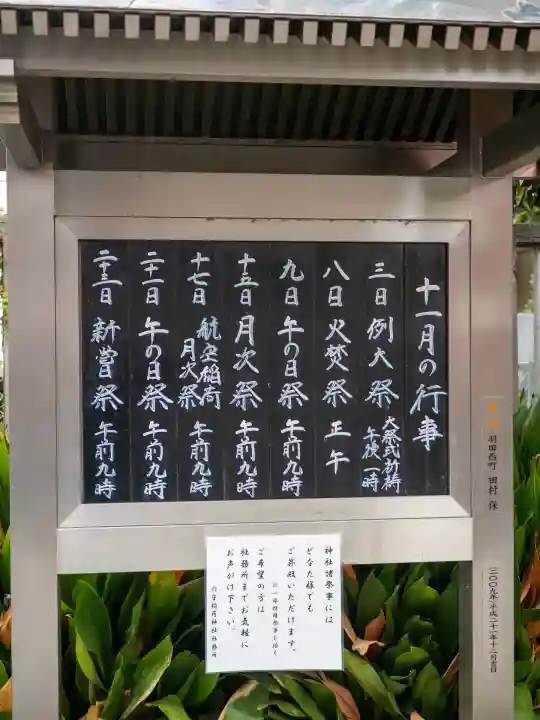 十一月の行事
三日 例大祭 大祭式祈祷 午後一時
八日 火焚祭 正午
九日 午の日祭 午前九時
十五日 月次祭 午前九時
十七日 航空稲荷月次祭 午前九時
二十一日 午の日祭 午前九時
二十三日 新嘗祭 午前九時
神社諸祭事には
どなた様でも
ご参拝いただけます。
ご希望の方は
社務所までお気軽に
お声がけ下さい。
穴守稲荷神社社務所
羽田西町 田村 保
二〇〇九年(平成二十一年)十二月吉日